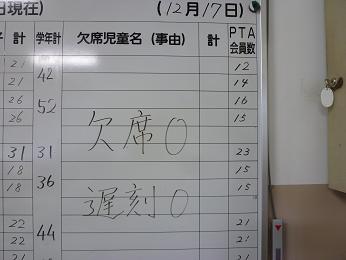 日現在) (12月17日)
計 学年計 欠席児童名(事由) 計 PTA会員数
21 12
42
21 14
26 16
52
26 15
欠席0
31 31 23
18 15
36
18 15
遅刻0
22 21
44
22 21